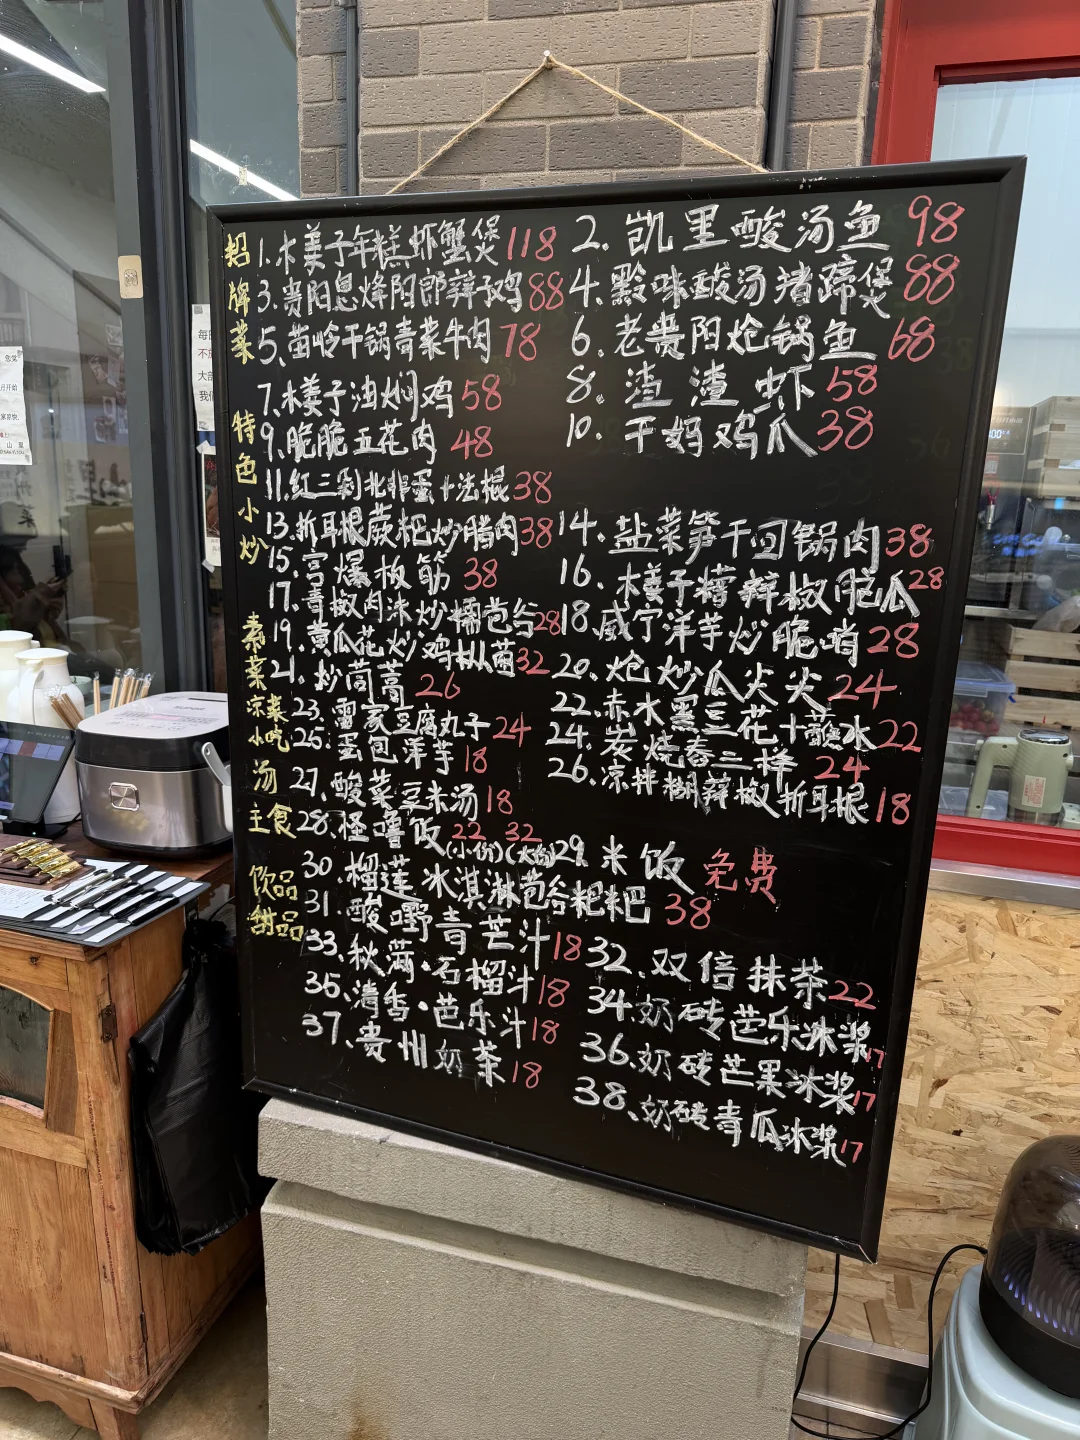 招牌菜
1.木姜子年糕虾蟹煲118
2.凯里酸汤鱼98
3.贵阳息烽阳郎辣子鸡88
4.黔味酸汤猪蹄煲88
5、苗岭干锅青菜牛肉78
6.老贵阳炝锅鱼68
特色小炒
7.木姜子油焖鸡58
8.渣渣虾58
9.脆脆五花肉48
10.干妈鸡爪38
11.红三剁+北非蛋+法棍38
13.折耳根蕨粑炒腊肉38
14.盐菜笋干回锅肉38
15.宫爆板筋38
16.木姜子糟辣椒脆瓜28
17.青椒肉沫炒糯苞谷28
18.威宁洋芋炒脆哨28
素菜
19.黄瓜花炒鸡枞菌32
20.炝炒瓜尖尖24
21.炒茼蒿26
22.赤水黑豆花+蘸水22
凉菜
小吃
23.雷家豆腐丸子24
24.炭烧春三样24
25:蛋包洋芋18
26.凉拌糊辣椒折耳根18
汤
27.酸菜豆米汤18
主食
28.怪噜饭22 32
(小份)(大份)
29.米饭免费
饮品
甜品
30.榴莲冰淇淋苞谷粑粑38
31.酸嘢青芒汁18
32.双倍抹茶22
33.秋满·石榴汁18
34.奶砖芒乐冰浆17
35、清香·芭乐汁18
36.奶砖芒果冰浆17
37.贵州奶茶18
38、奶砖青瓜冰浆17